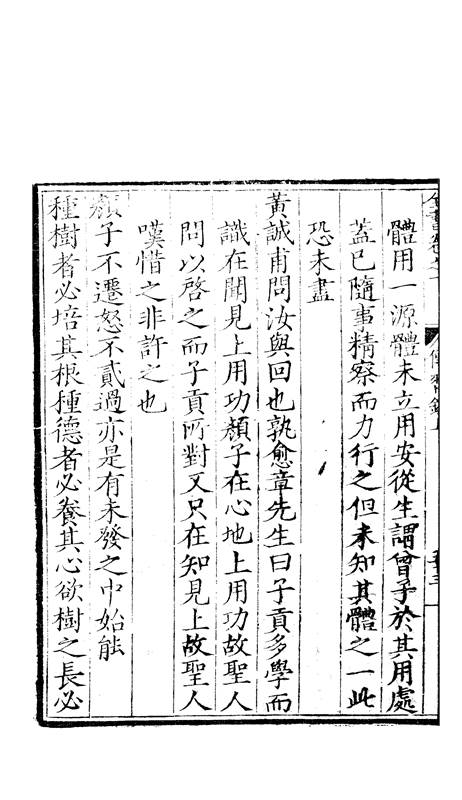 體用一源體未立用安從生謂曾子於其用處
蓋已隨事精察而力行之但未知其體之一此
恐未盡
黃誠甫問汝與回也孰愈章先生曰子貢多學而
識在聞見上用功顏子在心地上用功故聖人
問以啓之而子貢所對又只在知見上故聖人
嘆惜之非許之也
顏子不遷怒不貳過亦是有未發之中始能
種樹者必培其根種德者必養其心欲樹之長必